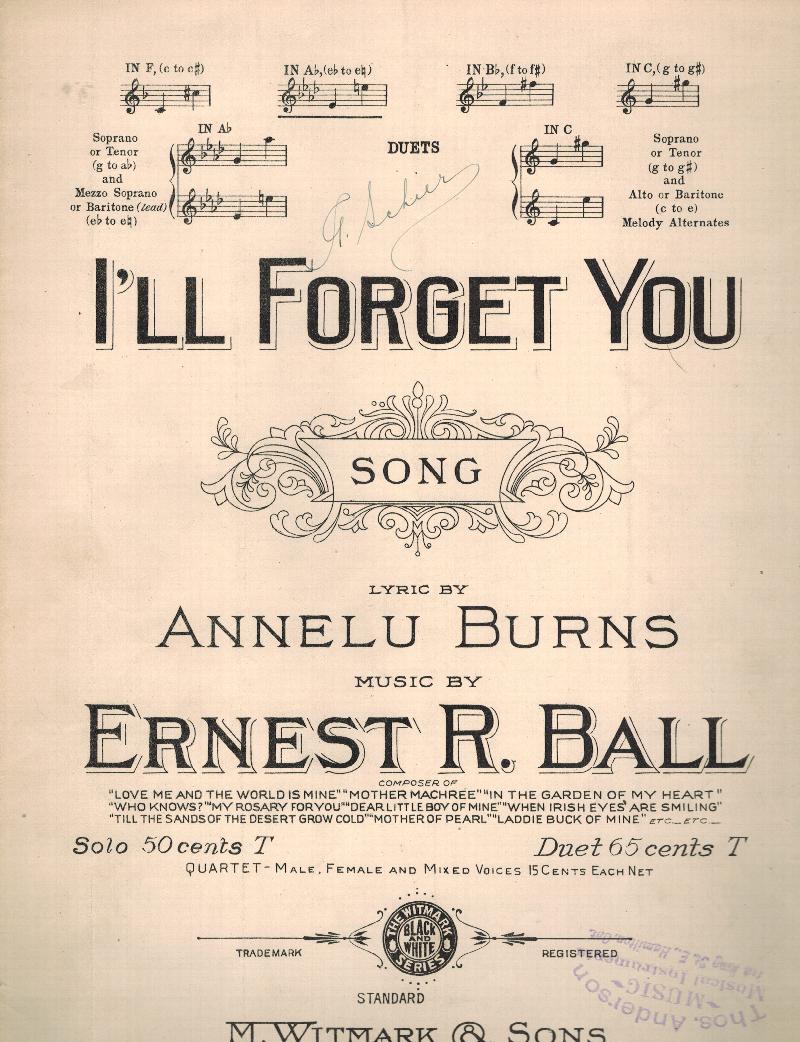 IN F, (c to c♯)
IN A♭, (e♭ to e♮)
IN B♭, (f to f♯)
IN C, (g to g♯)
IN A♭
Soprano
or Tenor
(g to a♭)
and
Mezzo Soprano
or Baritone (lead)
(e♭ to e♮)
DUETS
IN C
Soprano
or Tenor
(g to g♯)
and
Alto or Baritone
(c to e)
Melody Alternates
Schier
I'LL FORGET YOU
SONG
LYRIC BY
ANNELU BURNS
MUSIC BY
ERNEST R. BALL
COMPOSER OF
"LOVE ME AND THE WORLD IS MINE" "MOTHER MACHREE" "IN THE GARDEN OF MY HEART"
"WHO KNOWS?" "MY ROSARY FOR YOU" "DEAR LITTLE BOY OF MINE" "WHEN IRISH EYES ARE SMILING"
"TILL THE SANDS OF THE DESERT GROW COLD" "MOTHER OF PEARL" "LADDIE BUCK OF MINE" ETC. ETC.
Solo 50 cents T
Duet 65 cents T
QUARTET - MALE, FEMALE AND MIXED VOICES 15 CENTS EACH NET
THE WITMARK
BLACK
AND
WHITE
SERIES
TRADEMARK
REGISTERED
STANDARD
Thos. Anderson
MUSIC
Musical Instruments
King St. E., Hamilton, Ont.
M. WITMARK & SONS